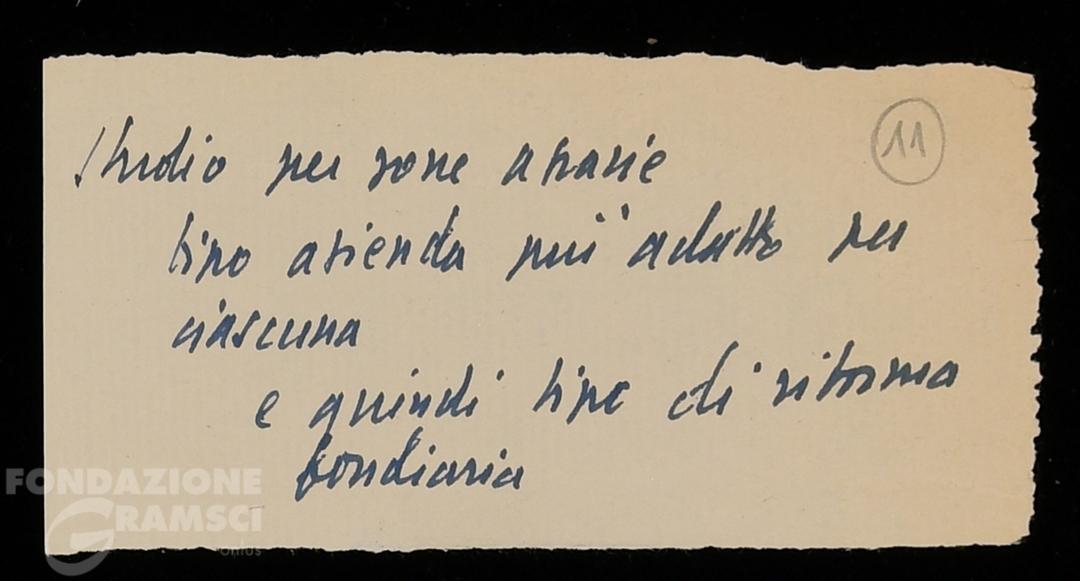 11
Studio per zone agrarie
tipo azienda più adatto per
ciascuna
e quindi tipo di riforma
fondiaria
FONDAZIONE
GRAMSCI
onlus